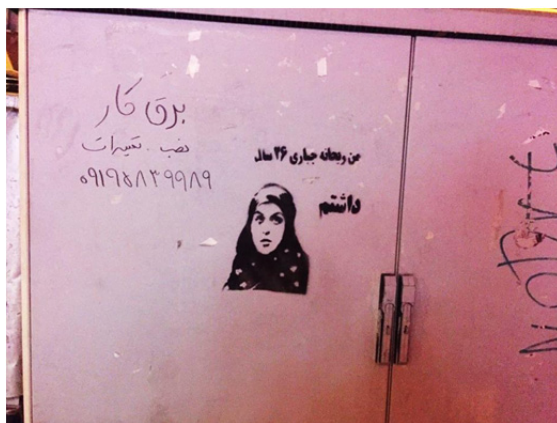 برق کار
نصب . تعمیرات
۰۹۱۹۵۸۳۹۹۸۹
من ریحانه جباری ۲۶ سال
داشتم